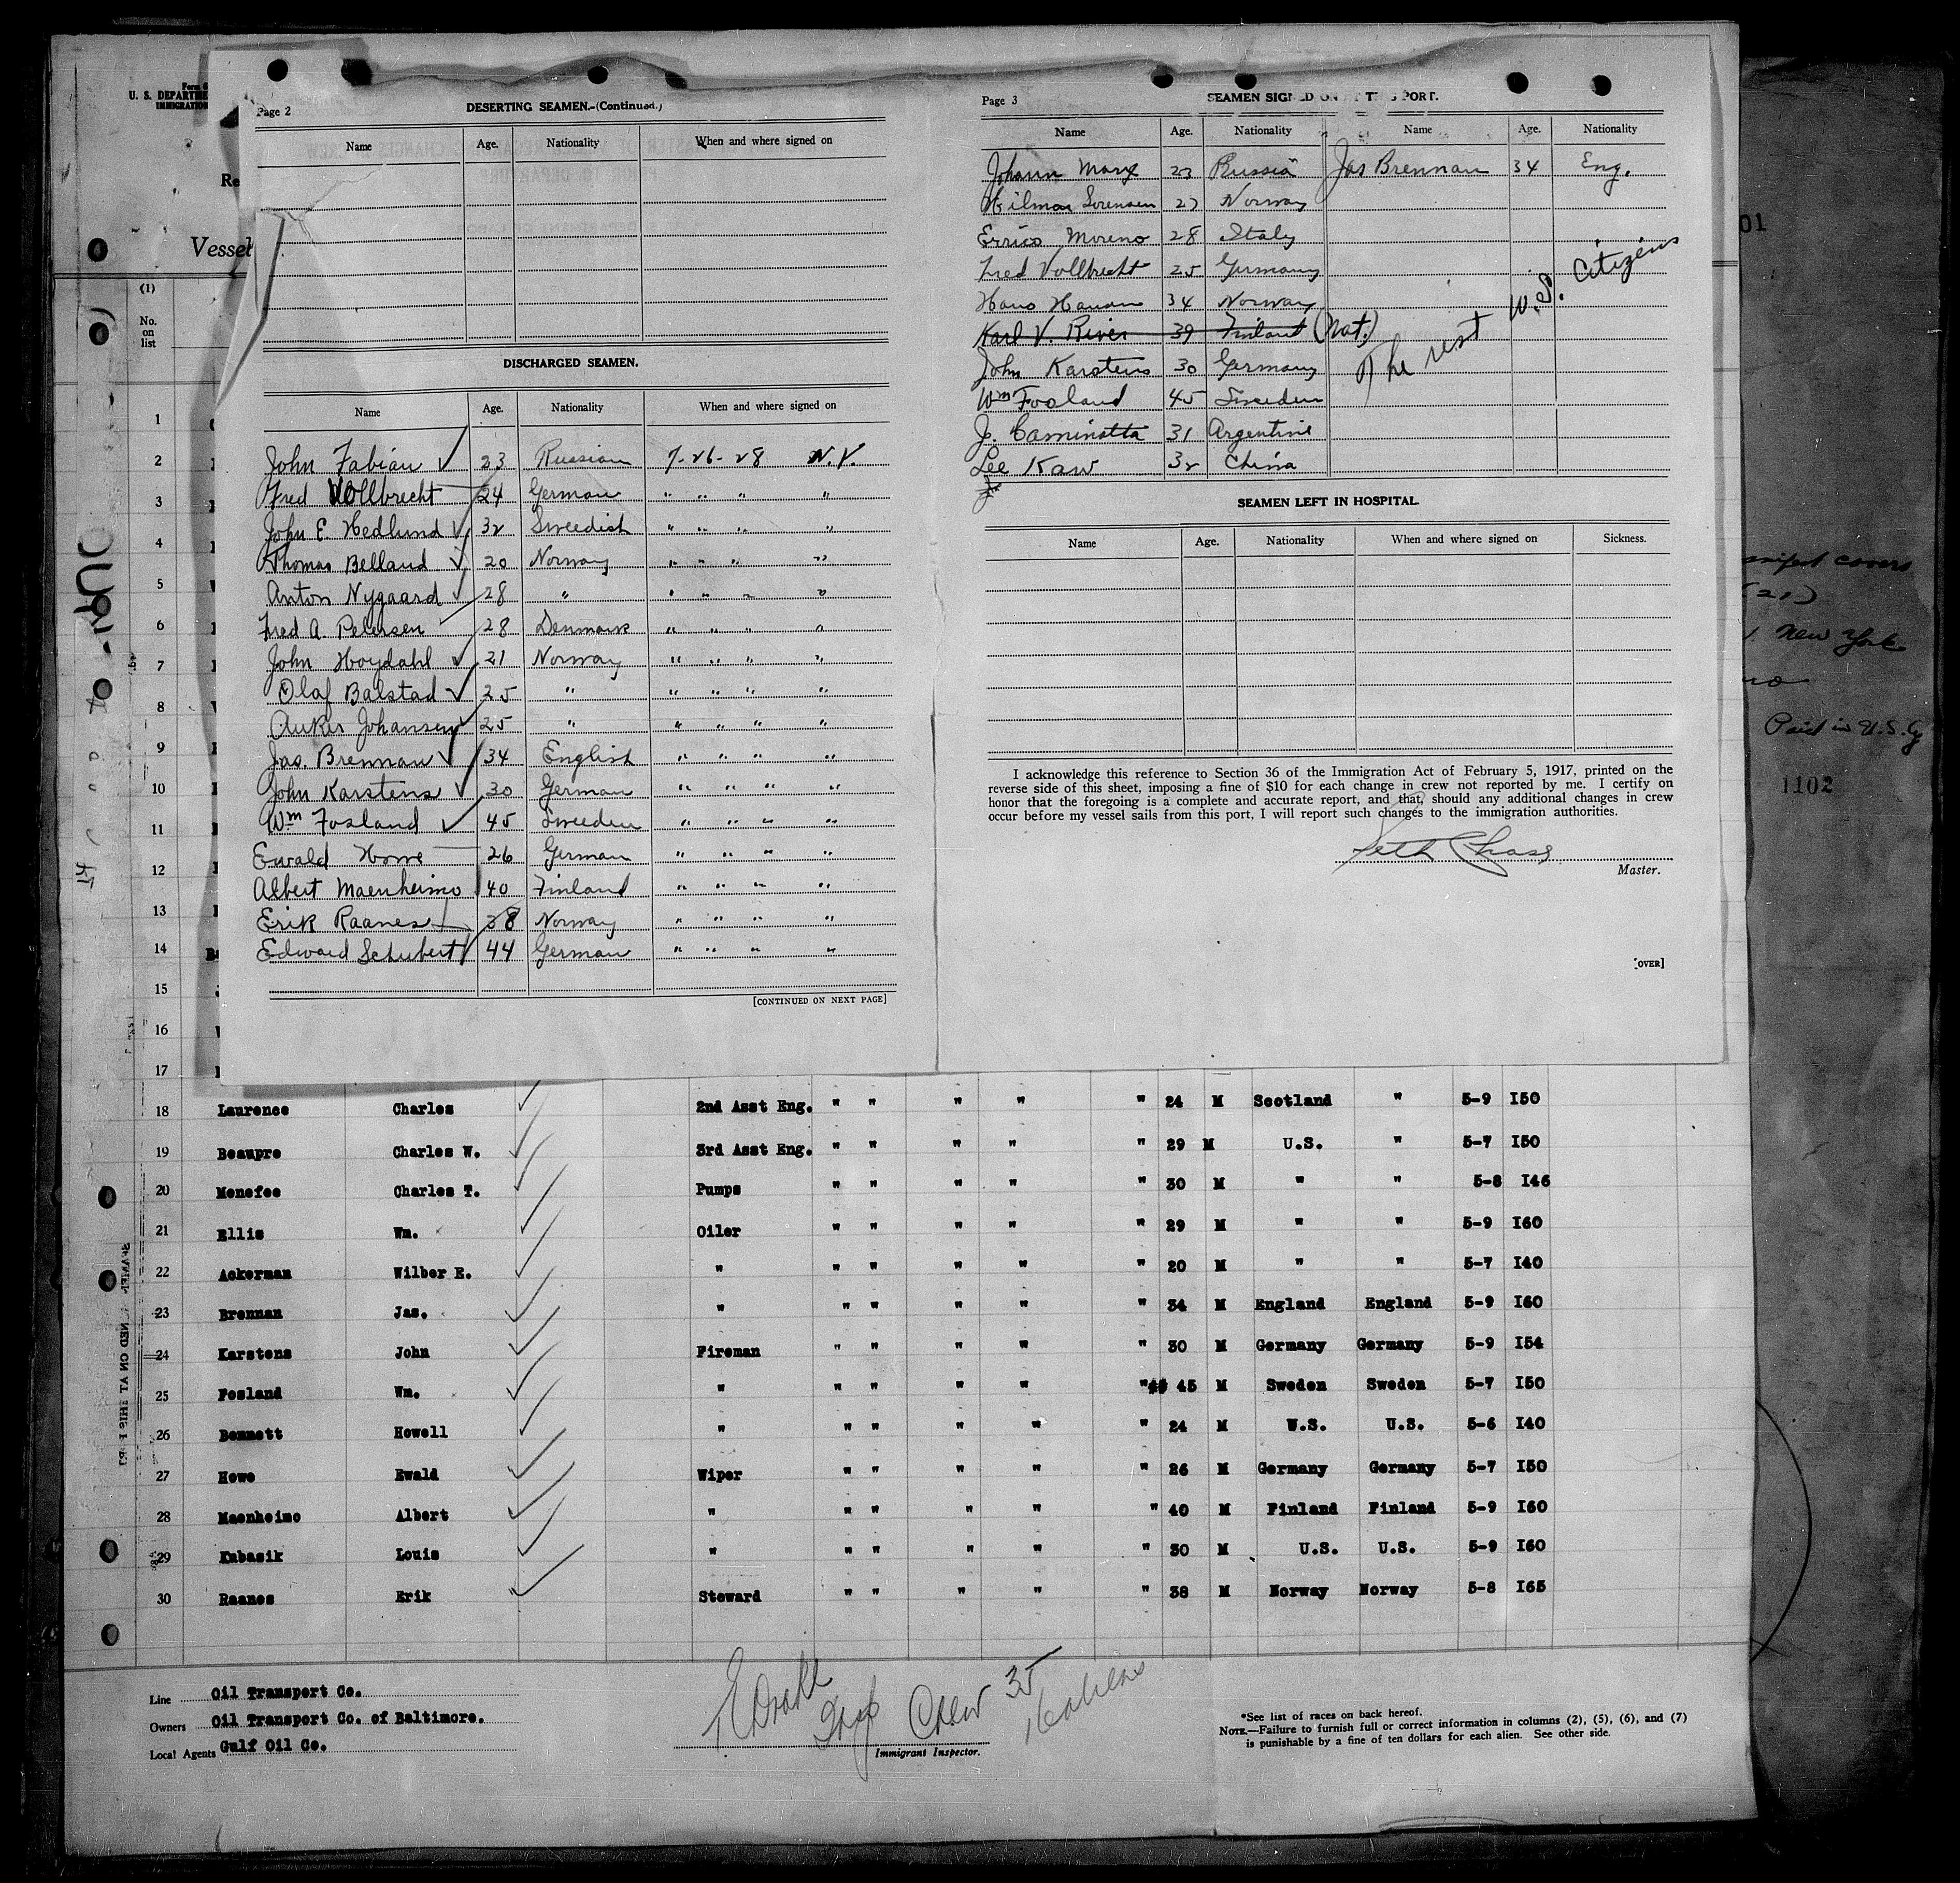 Form 6
U. S. DEPARTME
IMMIGRATION
Re
Vessel
(1)
No.
on
list
1
2
3
4
5
6
7
8
9
10
11
12
13
14
15
16
17
Page 2
DESERTING SEAMEN.-(Continued.)
Name Age. Nationality When and where signed on
DISCHARGED SEAMEN.
Name Age. Nationality When and where signed on
John Fabian ✓ 23 Russian 7-26-28 N.Y.
Fred Vollbrecht 24 German " " " "
John E. Hedlund ✓ 32 Sweedish " " " "
Thomas Belland ✓ 20 Norway " " " "
Anton Nygaard ✓ 28 " " " " "
Fred A. Petersen 28 Denmark " " " "
John Hoydahl ✓ 21 Norway " " " "
Olaf Balstad ✓ 25 " " " " "
Anker Johansen ✓ 25 " " " " "
Jas. Brennan ✓ 34 English " " " "
John Karstens ✓ 30 German " " " "
Wm Fosland ✓ 45 Sweeden " " " "
Ewald Howe 26 German " " " "
Albert Maenheimo 40 Finland " " " "
Erik Raanes 38 Norway " " " "
Edward Schubert 44 German " " " "
[CONTINUED ON NEXT PAGE]
Page 3
SEAMEN SIGNED ON AT THIS PORT.
Name Age. Nationality Name Age. Nationality
Johann Marx 23 Russia Jas Brennan 34 Eng.
Hilmar Sorensen 27 Norway
Errico Moreno 28 Italy
Fred Vollbrecht 25 Germany
Hans Hansen 34 Norway
Karl V. River 39 Finland (Nat.)
John Karstens 30 Germany
Wm Fosland 45 Sweeden
J. Caminotta 31 Argentine
Lee Kaw 32 China
The rest U.S. Citizens
SEAMEN LEFT IN HOSPITAL.
Name Age. Nationality When and where signed on Sickness.
I acknowledge this reference to Section 36 of the Immigration Act of February 5, 1917, printed on the
reverse side of this sheet, imposing a fine of $10 for each change in crew not reported by me. I certify on
honor that the foregoing is a complete and accurate report, and that, should any additional changes in crew
occur before my vessel sails from this port, I will report such changes to the immigration authorities.
Seth Chase
Master.
[OVER]
01
covers
(21)
New York
Paid in U.S.
1102
18 Laurence Charles ✓ 2nd Asst Eng. " " " " " 24 M Scotland " 5-9 I50
19 Beaupre Charles W. ✓ 3rd Asst Eng. " " " " " 29 M U.S. " 5-7 I50
20 Menefee Charles T. ✓ Pumps " " " " " 30 M " " 5-8 I46
21 Ellis Wm. ✓ Oiler " " " " " 29 M " " 5-9 I60
22 Ackerman Wilber E. ✓ " " " " " " 20 M " " 5-7 I40
23 Brennan Jas. ✓ " " " " " " 34 M England England 5-9 I60
24 Karstens John ✓ Fireman " " " " " 30 M Germany Germany 5-9 I54
25 Fosland Wm. ✓ " " " " " " 45 M Sweden Sweden 5-7 I50
26 Bennett Howell ✓ " " " " " " 24 M U.S. U.S. 5-6 I40
27 Howe Ewald ✓ Wiper " " " " " 26 M Germany Germany 5-7 I50
28 Maenheimo Albert ✓ " " " " " " 40 M Finland Finland 5-9 I60
29 Kubasik Louis ✓ " " " " " " 30 M U.S. U.S. 5-9 I60
30 Raanes Erik ✓ Steward " " " " " 38 M Norway Norway 5-8 I65
Line Oil Transport Co.
Owners Oil Transport Co. of Baltimore.
Local Agents Gulf Oil Co.
Crew 35
16 aliens
Immigrant Inspector.
*See list of races on back hereof.
NOTE.—Failure to furnish full or correct information in columns (2), (5), (6), and (7)
is punishable by a fine of ten dollars for each alien. See other side.